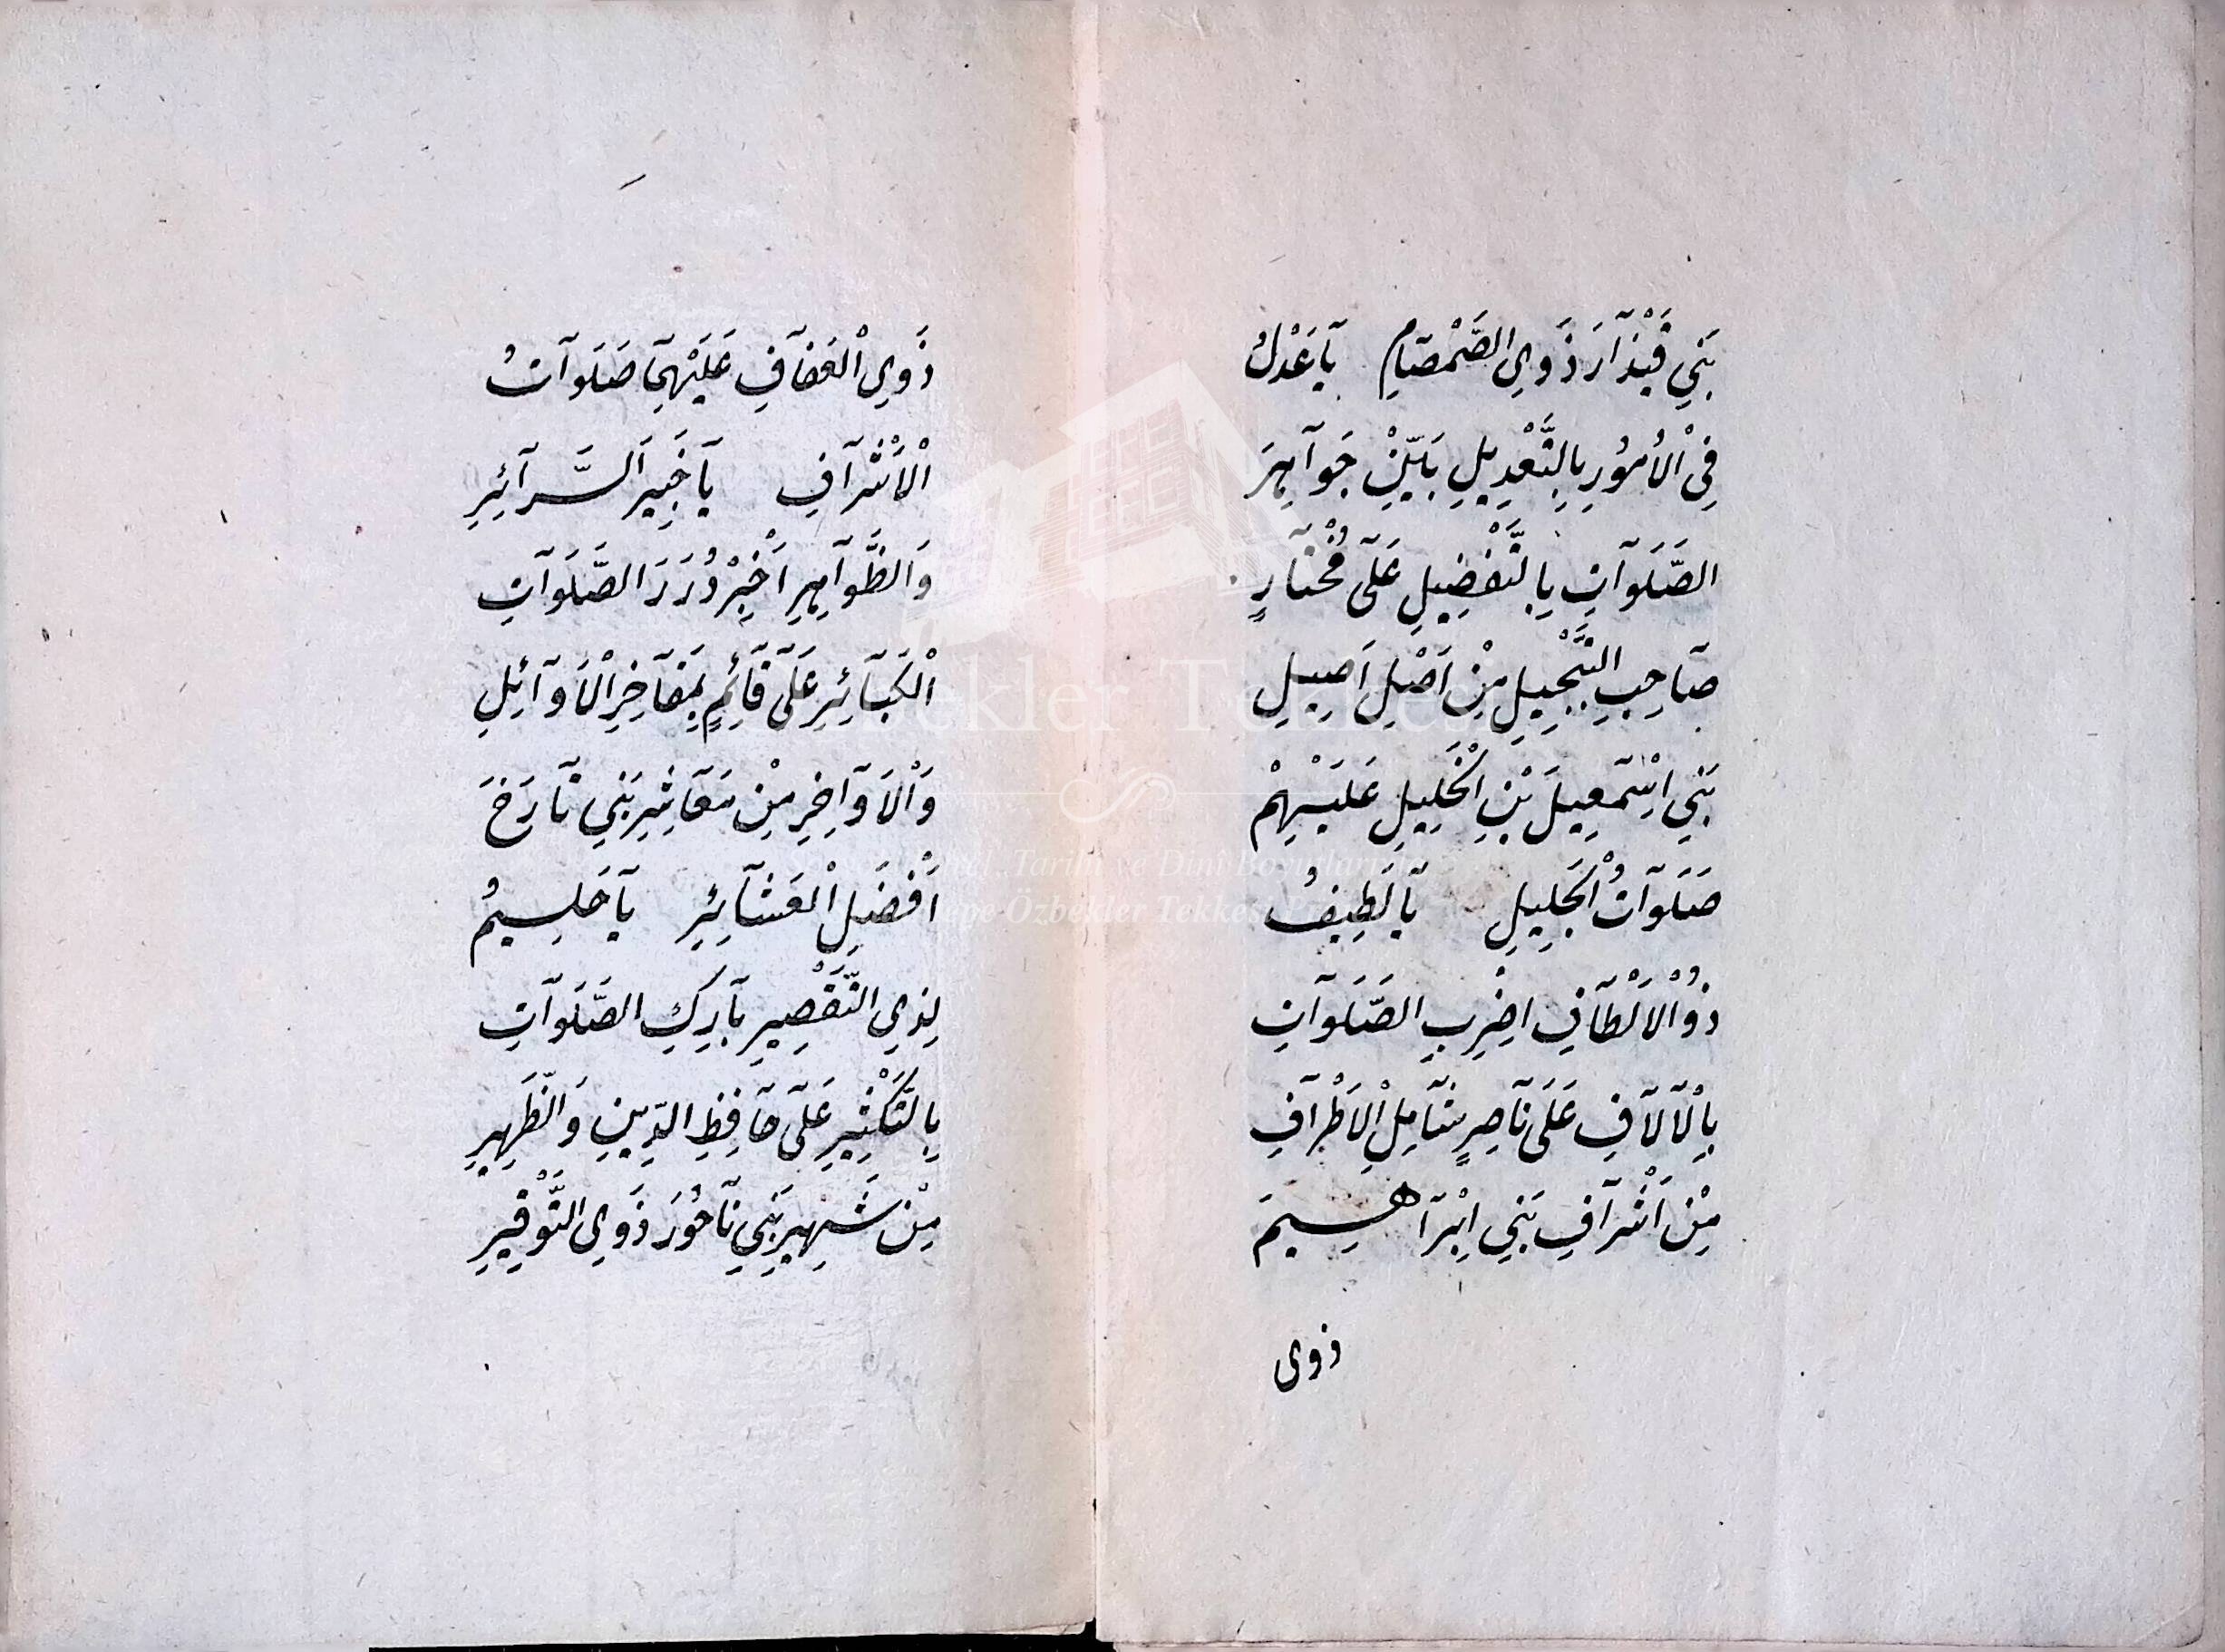 بَنِي قَيْذَآرَ ذَوِي الصَّمْصَامِ يَا عَدْلُ
فِي الْأُمُورِ بِالتَّعْدِيلِ بَيِّنْ جَوَآهِرَ
الصَّلَوَآتِ بِالتَّفْضِيلِ عَلَى مُخْتَارٍ
صَاحِبِ التَّبْجِيلِ مِنْ اَصْلِ اَصِيلِ
بَنِي اِسْمَعِيلَ بْنِ الْخَلِيلِ عَلَيْهِمْ
صَلَوَآتُ الْجَلِيلِ يَا لَطِيفُ
ذُو الْاَلْطَآفِ اضْرِبِ الصَّلَوَآتِ
بِالْآلَافِ عَلَى نَاصِرٍ شَامِلِ الْاَطْرَآفِ
مِنْ اَشْرَآفِ بَنِي اِبْرَآهِيمَ
ذوى
ذَوِي الْعَفَآفِ عَلَيْهِمَا صَلَوَآتُ
الْاَشْرَآفِ يَا خَبِيرَ السَّرَآئِرِ
وَالظَّوَآهِرِ اَخْبِرْ دُرَرَ الصَّلَوَآتِ
الْكَبَآئِرِ عَلَى قَآئِمٍ بِمَفَاخِرِ الْاَوَآئِلِ
وَالْاَوَاخِرِ مِنْ مَعَاشِرِ بَنِي تَارَخَ
اَفْضَلِ الْعَشَآئِرِ يَا حَلِيمُ
لِذِي التَّقْصِيرِ بَارِكِ الصَّلَوَآتِ
بِالتَّكْثِيرِ عَلَى حَافِظِ الدِّينِ وَالظَّهِيرِ
مِنْ شَهِيرِ بَنِي نَاحُورَ ذَوِي التَّوْقِيرِ
Özbekler Tekkesi